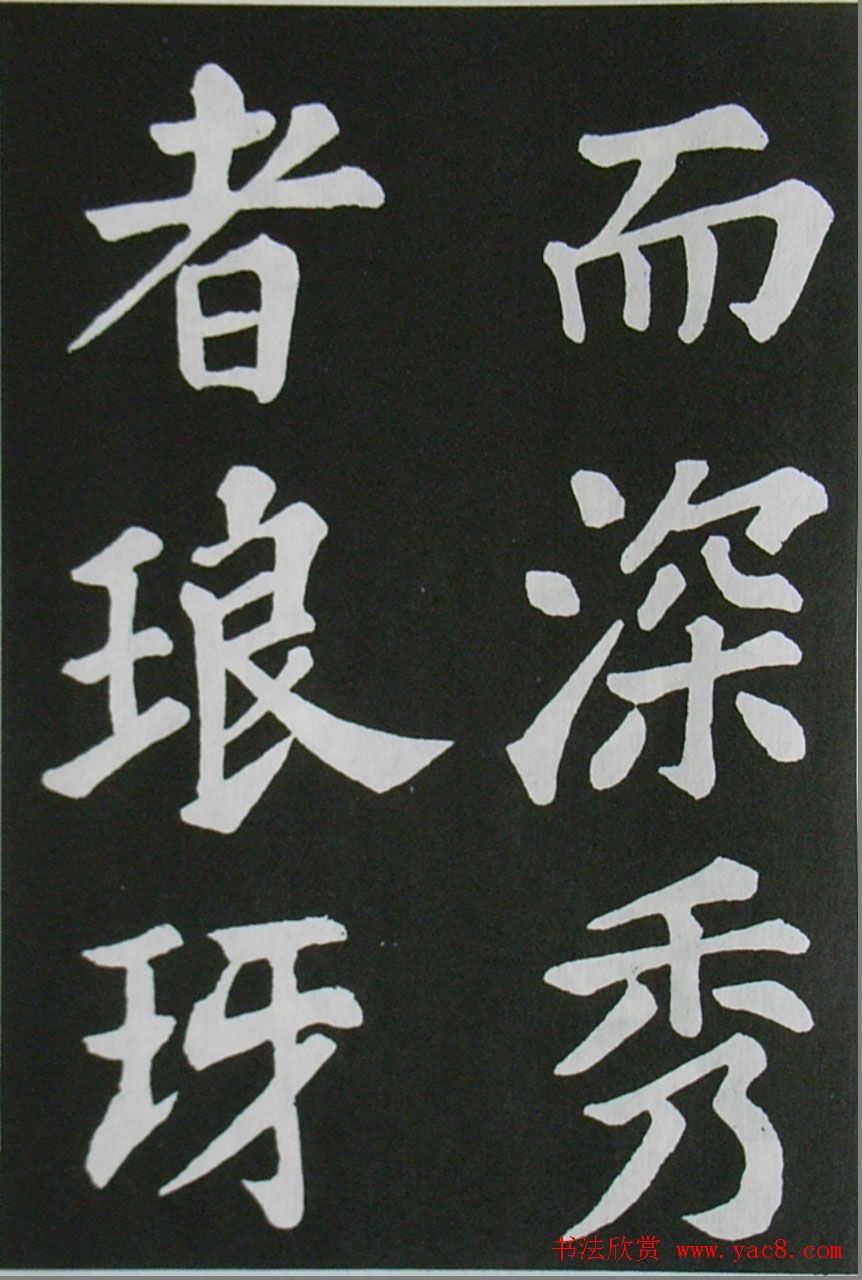 而深秀
者琅玡
书法欣赏 www.yac8.com